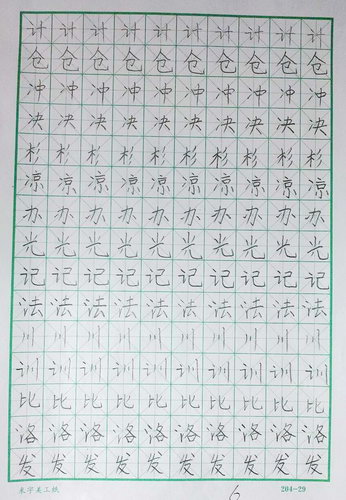 计 计 计 计 计 计 计 计 计 计
仓 仓 仓 仓 仓 仓 仓 仓 仓 仓
冲 冲 冲 冲 冲 冲 冲 冲 冲 冲
决 决 决 决 决 决 决 决 决 决
杉 杉 杉 杉 杉 杉 杉 杉 杉 杉
凉 凉 凉 凉 凉 凉 凉 凉 凉 凉
办 办 办 办 办 办 办 办 办 办
光 光 光 光 光 光 光 光 光 光
记 记 记 记 记 记 记 记 记 记
法 法 法 法 法 法 法 法 法 法
川 川 川 川 川 川 川 川 川 川
训 训 训 训 训 训 训 训 训 训
比 比 比 比 比 比 比 比 比 比
洛 洛 洛 洛 洛 洛 洛 洛 洛 洛
发 发 发 发 发 发 发 发 发 发
米字美工纸 6 284-29